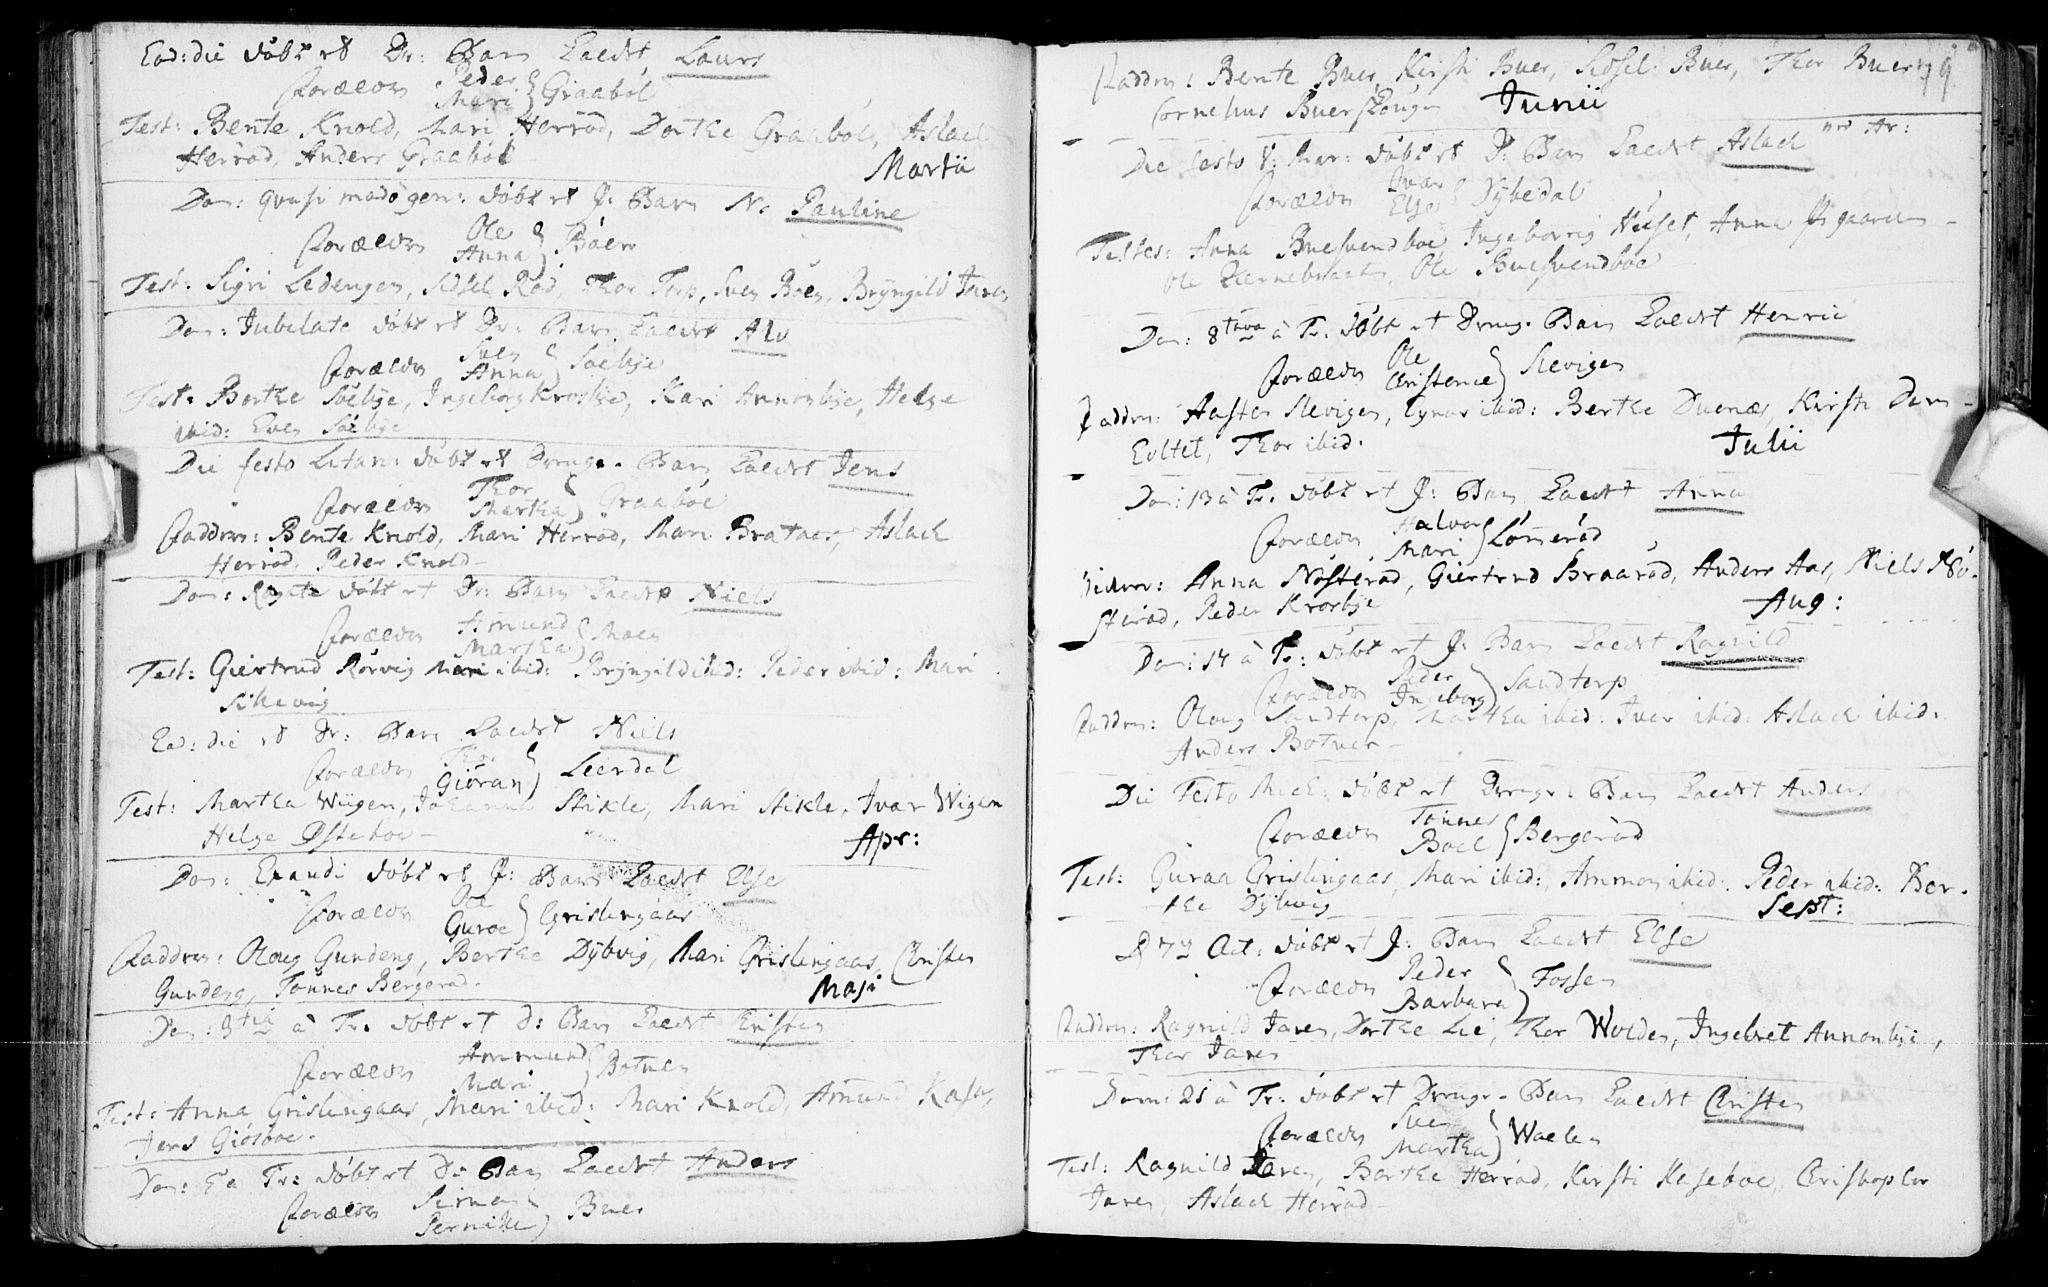 Ead: die döbt et Dr: Barn kaldt Laurs
Forældre Peder Mari } Graaböl
Test: Bente Knold, Mari Herröd, Dorthe Graaböl, Aslach
Herröd, Anders Graaböl
Martii
Dom: qvasi modogen: döbt et P: Barn N: Pauline
Forældre Ole Anna } Böen
Test: Sigri Ledengen, Sidsel Röd, Thor Torp, Sven Böen, Bryngild Jaren
Dom: Jubilate döbt et Dr: Barn kaldt Alv
Forældre Sven Anna } Soelbye
Test: Berthe Söelbye, Ingeborg Krosbye, Kari Annonbye, Helge
ibid: Even Söelbye
Die festo Litan: döbt et Drenge-Barn kaldt Jens
Forældre Thor Martha } Graaböl
Faddere: Bente Knold, Mari Herröd, Mari Bratner, Aslach
Herröd, Peder Knold
Dom: Rogate döbt et Dr: Barn kaldt Niels
Forældre Amund Martha } Moen
Test: Giertrud Rörvig Mari ibid: Bryngild ibid: Peder ibid: Mari
Silevig
Ead: die et Dr: Barn kaldt Niels
Forældre Thor Giöran } Leerdal
Test: Martha Wiigen, Johanna Stikle, Mari Stikle, Ivar Wigen
Helge Østeboe
Apr:
Dom: Exaudi döbt et P: Barn kaldt Else
Forældre Ole Guroe } Grislingaas
Faddere: Oloug Gundeng, Berthe Dybvig, Mari Grislingaas, Christen
Gundeng, Tönnes Bergeröd
Maji
Dom: 3tia à Tr. döbt et D: Barn kaldt Christen
Forældre Ammund Mari } Botnen
Test: Anna Grislingaas, Mari ibid: Mari Knold, Amund Kasa,
Jens Giösboe
Dom: 6a Tr: döbt et D: Barn kaldt Anders
Forældre Simen Pernille } Buer
Faddere: Bente Buer, Kirsti Buer, Sidsel Buer, Thor Buer 79
Cornelius Buerskougen Junii
Die festo V: Mar: döbt et D: Barn kaldt Aslach
Forældre Ivar Else } Dybedal
Testes: Anna Buesvendboe Ingeborrig Huset, Anna
Ole Kiernebraaten, Ole Buesvendboe
Dom: 8tava à Tr. döbt et Drenge-Barn kaldt Henric
Forældre Ole Christence } Slevigen
Faddere: Aasten Slevigen, ibid: Berthe Duenæs, Kirsti Dam-
Eoltet, Thor ibid.
Julii
Dom: 13 à Tr. döbt et P: Barn kaldt Anna
Forældre Halvor Mari } Lömeröd
Anna Nösteröd, Giertrud Braaröd, Anders Aas, Niels Nö-
steröd, Peder Krosbye
Aug:
Dom: 14 à Tr: döbt et P: Barn kaldt Ragnild
Forældre Peder Ingeborg } Sandtorp
Faddere: Oloug Sandtorp, Martha ibid: Iver ibid. Aslach ibid.
Anders Botner
Die Festo Mich: döbt et Drenge-Barn kaldt Anders
Forældre Tönnes Boel } Bergeröd
Test: Guraa Grislingaas, Mari ibid: Ammon ibid: Peder ibid: Ber-
the Dybvig
Sept:
D 7 Oct: döbt et P: Barn kaldt Else
Forældre Peder Barbara } Fossen
Faddere: Ragnild Jaren, Dorthe Lie, Thor Wolden, Ingebret Annonbye,
Thor Jaren
Dom: 21 à Tr: döbt et Drenge-Barn kaldt Christen
Forældre Sven Martha } Waelen
Test: Ragnild Jaren, Berthe Herröd, Kirsti Keseboe, Christopher
Jaren, Aslach Herröd